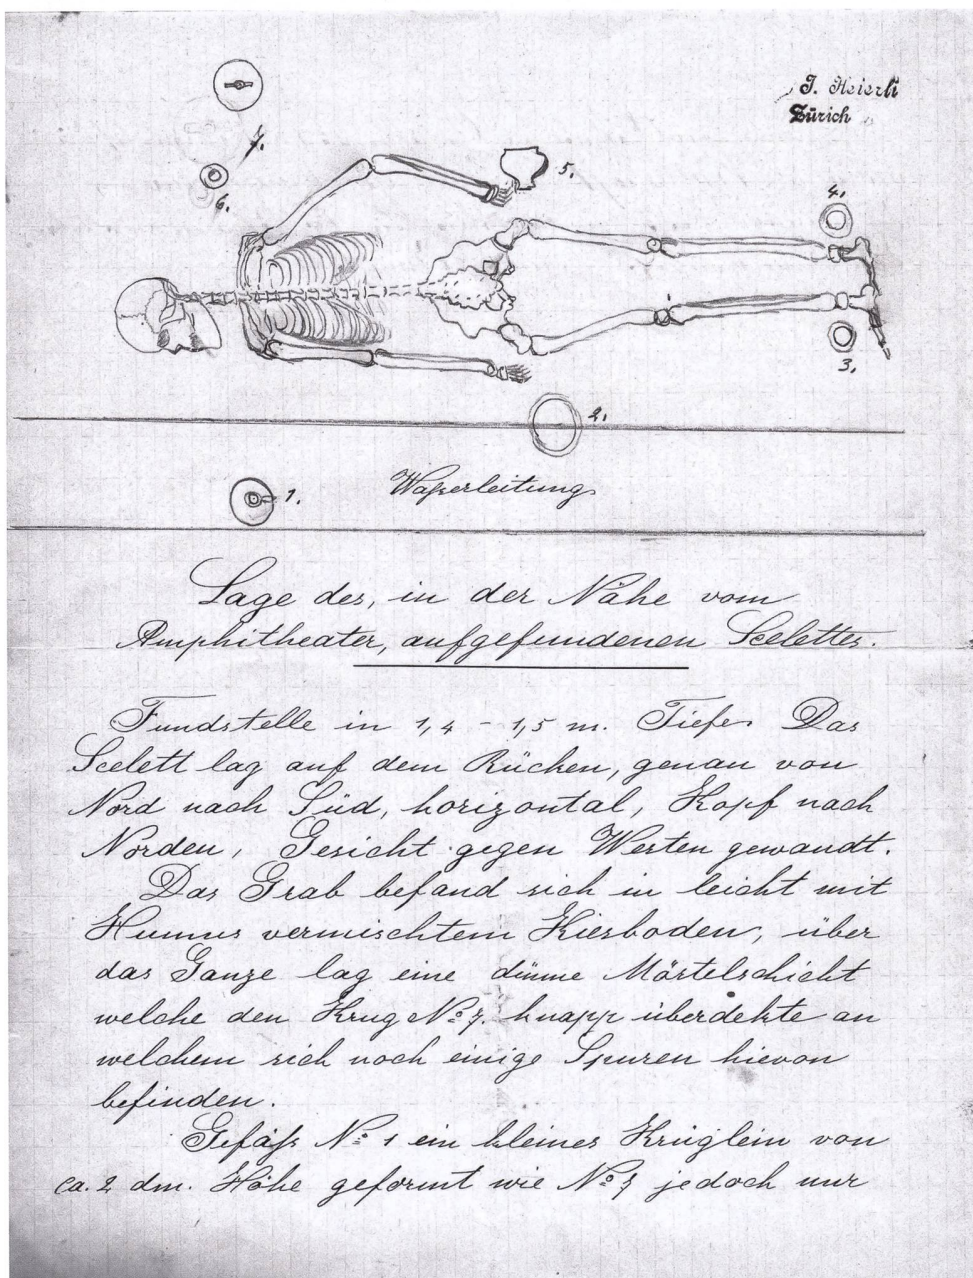 J. Heierli
Zürich
7.
6.
5.
4.
3.
2.
1.
Waßerleitung
Lage des, in der Nähe vom
Amphitheater, aufgefundenen Scelettes.
Fundstelle in 1,4 - 1,5 m. Tiefe. Das
Scelett lag auf dem Rücken, genau von
Nord nach Süd, horizontal, Kopf nach
Norden, Gesicht gegen Westen gewandt.
Das Grab befand sich in leicht mit
Humus vermischtem Kiesboden, über
das Ganze lag eine dünne Mörtelschicht
welche den Krug No 7. knapp überdekte an
welchem sich noch einige Spuren hievon
befinden.
Gefäß No 1 ein kleines Krüglein von
ca. 2 dm. Höhe geformt wie No 7 jedoch nur